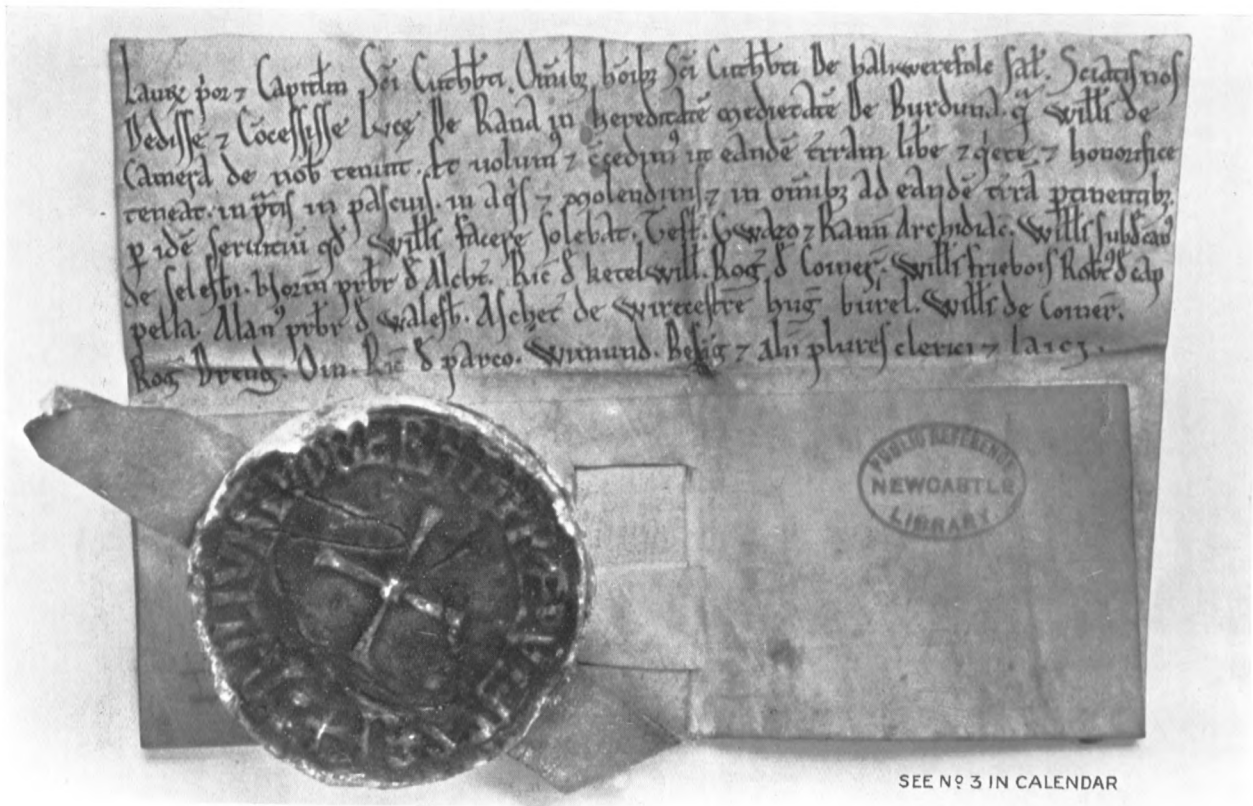 Laur̄ p̄or ⁊ Capitulm̄ Sc̄i Cuthbti. Om̄ibꝫ hōibꝫ Sc̄i Cuthbti De haliwerefolc sat̄. Sciatis nos
Dedisse ⁊ Cōcessisse Luce De Rana in hereditatē medietatē De Burduna. qͣ Willi de
Camera de nob tenuit. Et uolumꝰ ⁊ ut eandē t̄rram libe ⁊ qͥete ⁊ honorifice
teneat. in pͣtis in pascuis. in aqͥs ⁊ molendinis ⁊ in om̄ibꝫ ad eandē t̄rā ptinentibꝫ.
p idē seruiciū qd̄ Willi facere solebat. Test. Gwazo ⁊ Rann̄ Archidiac̄. Willi
de selesbi. pr̄br đ Alc̄b. Ric̄ đ ketelwill. Rog̅ đ Comer̄. Willi friebois Rob̄e đ cap
pella. Alanꝰ pr̄br đ Walesb̄. Aschet̄ de Wirecestre hug̅ burel. Willi de Comer̄.
Rog̅ Dreng̅. Oin. Ric̄ đ parco. Winmund. Besig ⁊ Alii plures clerici ⁊ laici.
PUBLIC REFERENCE
NEWCASTLE
LIBRARY.
SEE Nº 3 IN CALENDAR